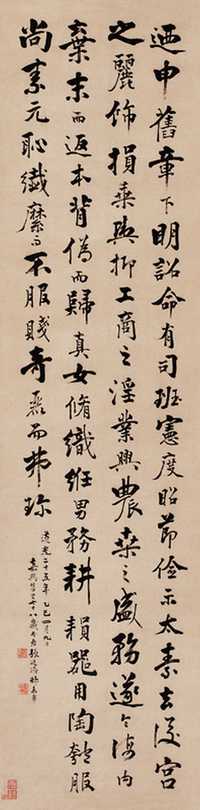 迺申舊章下明詔命有司班憲度昭節儉示太素去後宮
之麗飾損乘輿抑工商之淫業興農桑之盛務遂令海內
棄末而返本背偽而歸真女脩織紝男務耕器用陶匏服
尚素元恥纖縻而不服賤奇麗而弗珍
道光二十五年乙巳四月九日
嘉興七十八歲張廷濟叔未甫